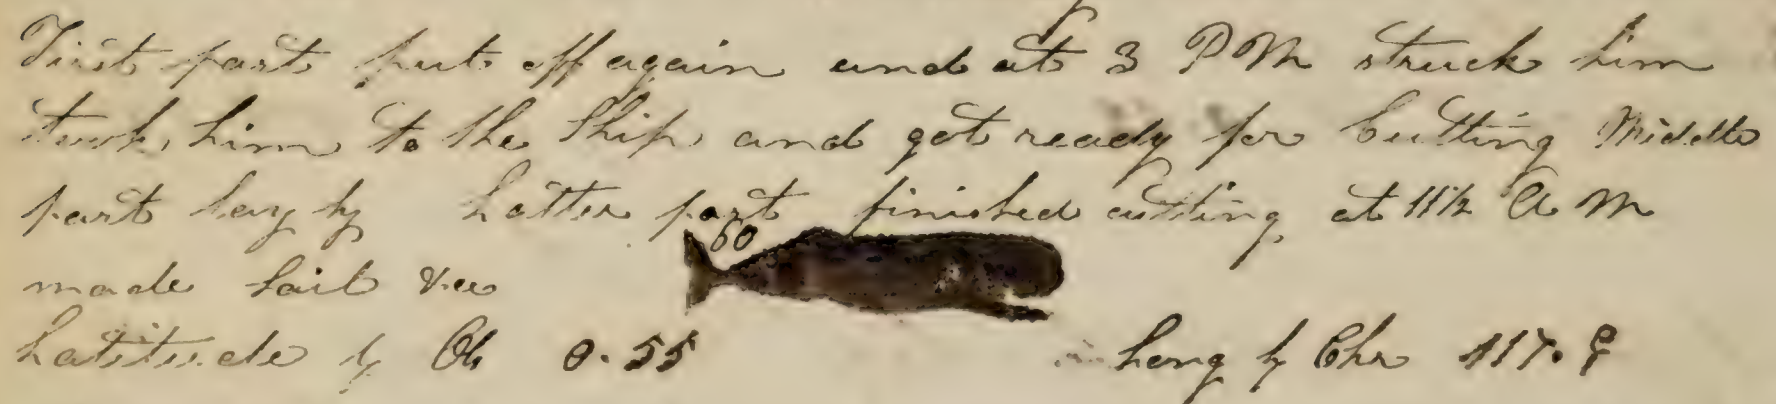 First part put off again and at 3 PM struck him
took him to the Ship and got ready for Cutting Middle
part lay by Latter part finished cutting at 11½ A M
60
made sail &cc
Latitude by Ob 0.55 Long by Chr 117.